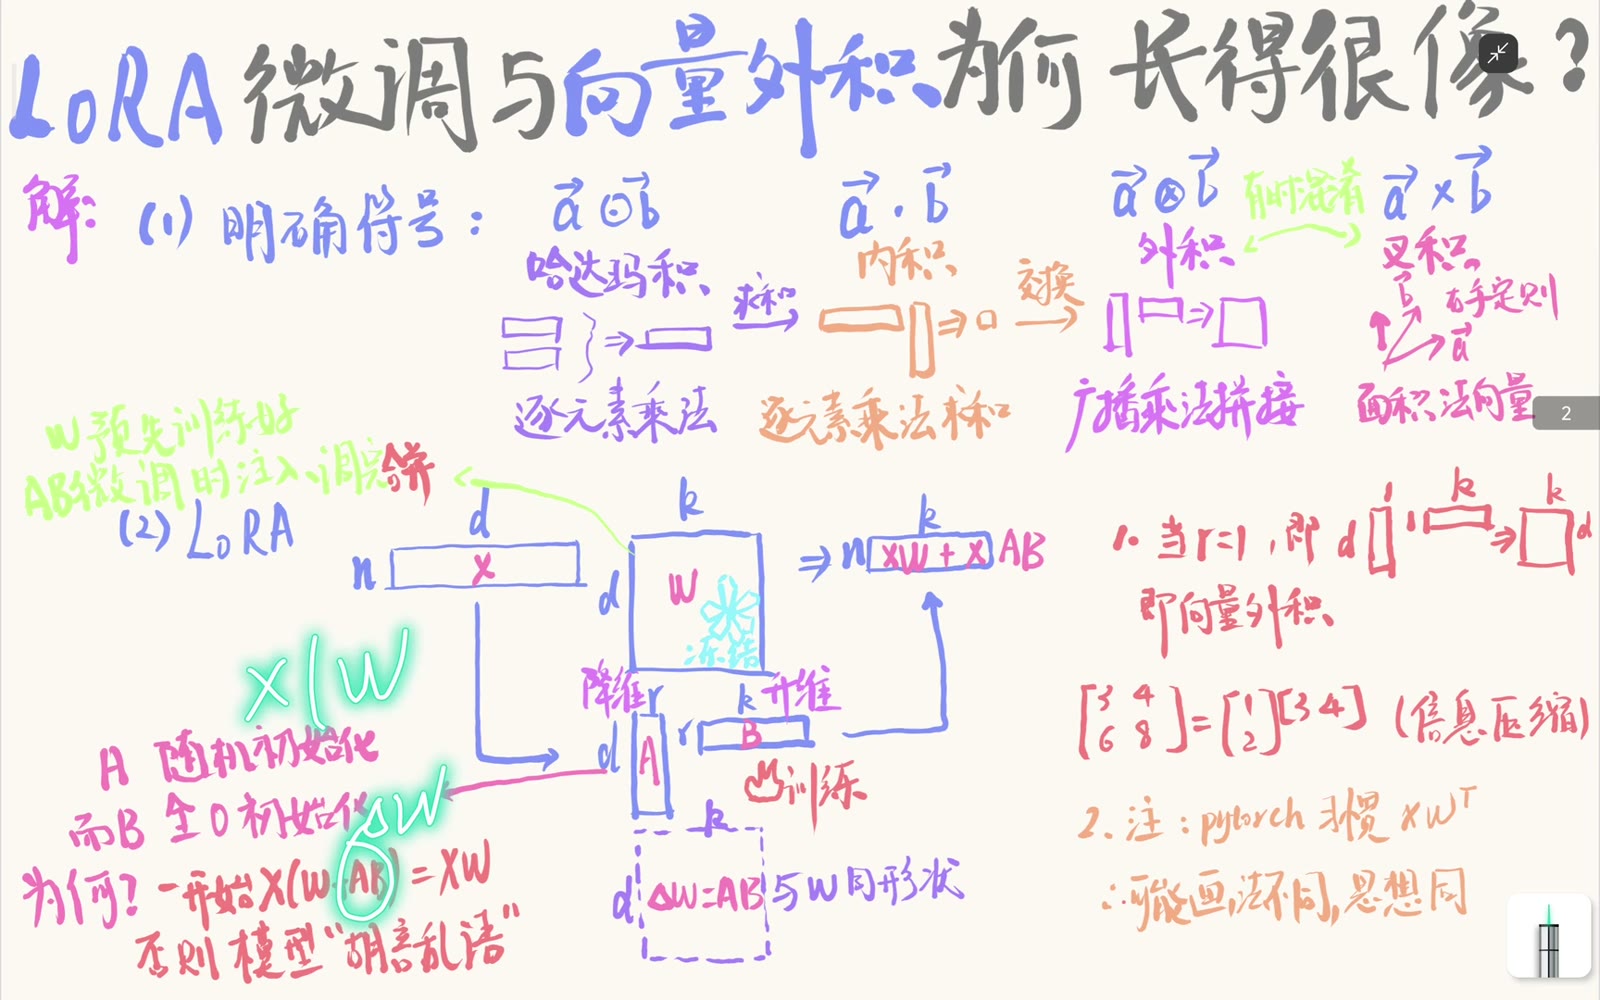 LoRA 微调与向量外积为何长得很像?
解: (1) 明确符号:
a⊙b
哈达玛积
逐元素乘法
求和
a·b
内积
逐元素乘法求和
交换
a⊗b
外积
广播乘法拼接
有时混淆
a×b
叉积
b 右手定则
a
面积法向量
2
W预先训练好
AB微调时注入、调完合并
(2) LoRA
d
n X
k
d W
冻结
⇒ n XW + X AB
k
降维 r
d A
k 升维
r B
训练
k
d ΔW=AB 与W同形状
X(W
A 随机初始化
而B 全0初始化
ΔW
为何? 一开始X(W AB)=XW
否则模型“胡言乱语”
1. 当r=1,即 d 1 1 k ⇒ k d
即向量外积
[3 4 6 8] = [1 2][3 4] (信息压缩)
2. 注: pytorch 习惯 XWᵀ
∴可能画法不同,思想同